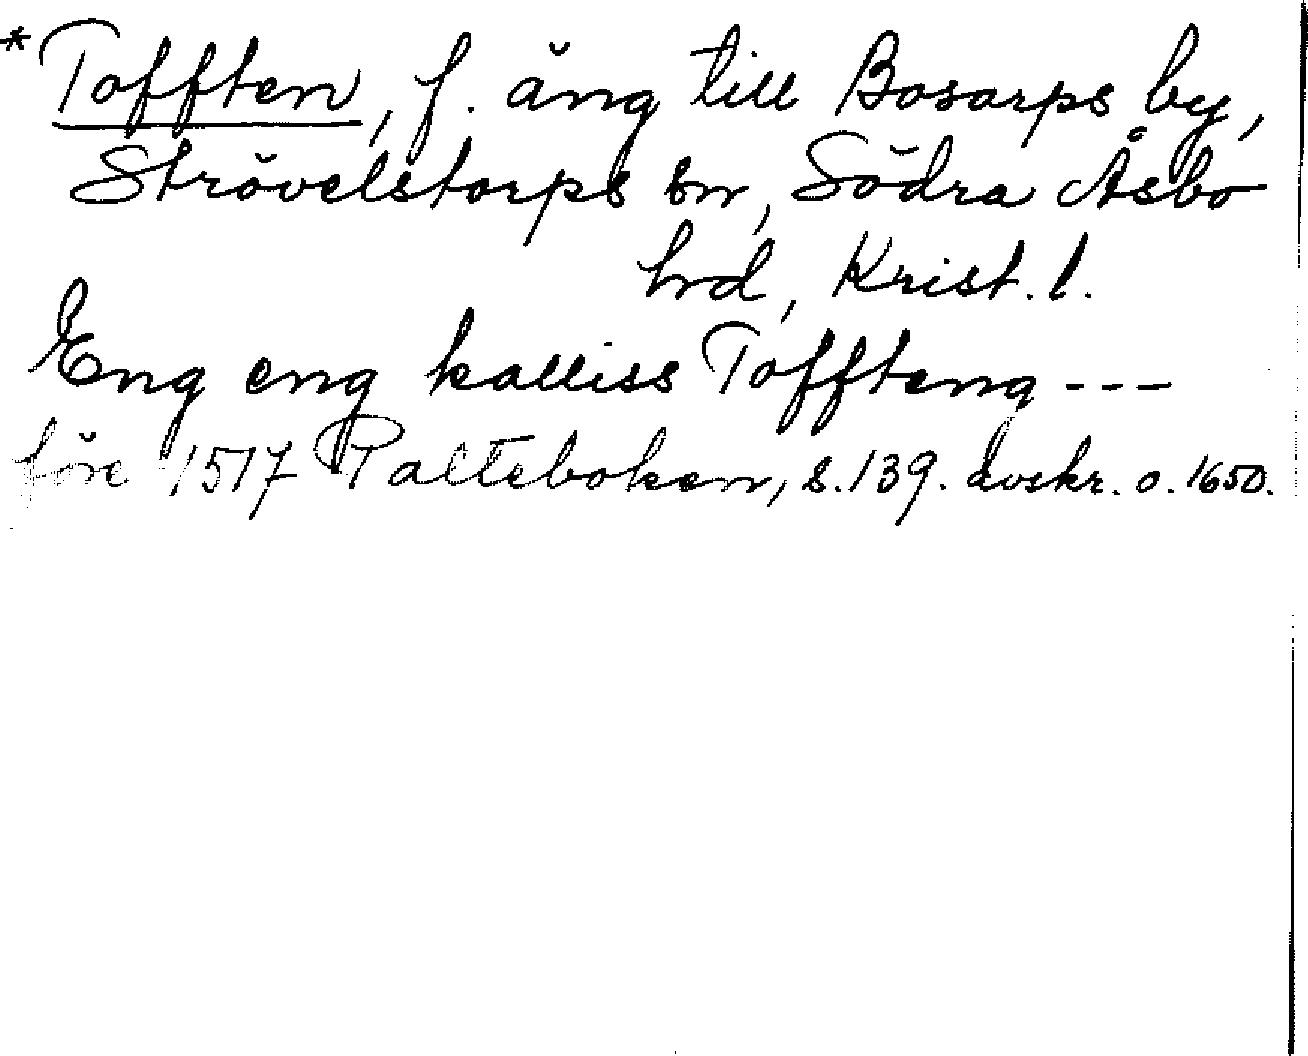 *Tofften, f. äng till Bosarps by,
Strövelstorps sn, Södra Åsbo
hd, Krist. l.
Eng eng kalliss Toffteng ---
före 1517 Palteboken, s. 139. avskr. o. 1650.